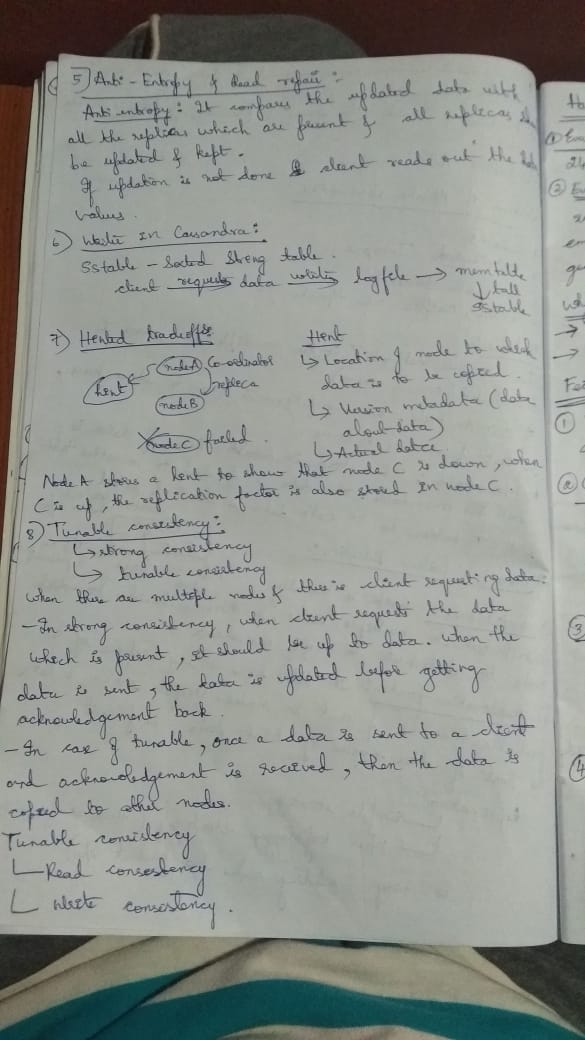 5) Anti-Entropy & Read repair :-
Anti entropy : It compares the updated data with
all the replicas which are present & all replicas
be updated & kept.
If updation is not done client reads out the
values.
6) Write In Cassandra :
SStable - Sorted String table.
client requests data writing logfile → memtable
↓ full
SStable
7) Hinted
Hint
node A Co-ordinator
↳ Location of node to which
hint
replica
data is to be copied.
node B
↳ Version metadata (data
about data)
node C failed.
↳ Actual data
Node A stores a hint to show that node C is down, when
C is up, the replication factor is also stored in node C.
8) Tunable consistency :
↳ strong consistency
↳ tunable consistency
when there are multiple nodes & there is client requesting data.
- In strong consistency, when client requests the data
which is present, it should be up to data. when the
data is sent, the data is updated before getting
acknowledgement back.
- In case of tunable, once a data is sent to a client
and acknowledgement is received, then the data is
copied to other nodes.
Tunable consistency
Read consistency
Write consistency.